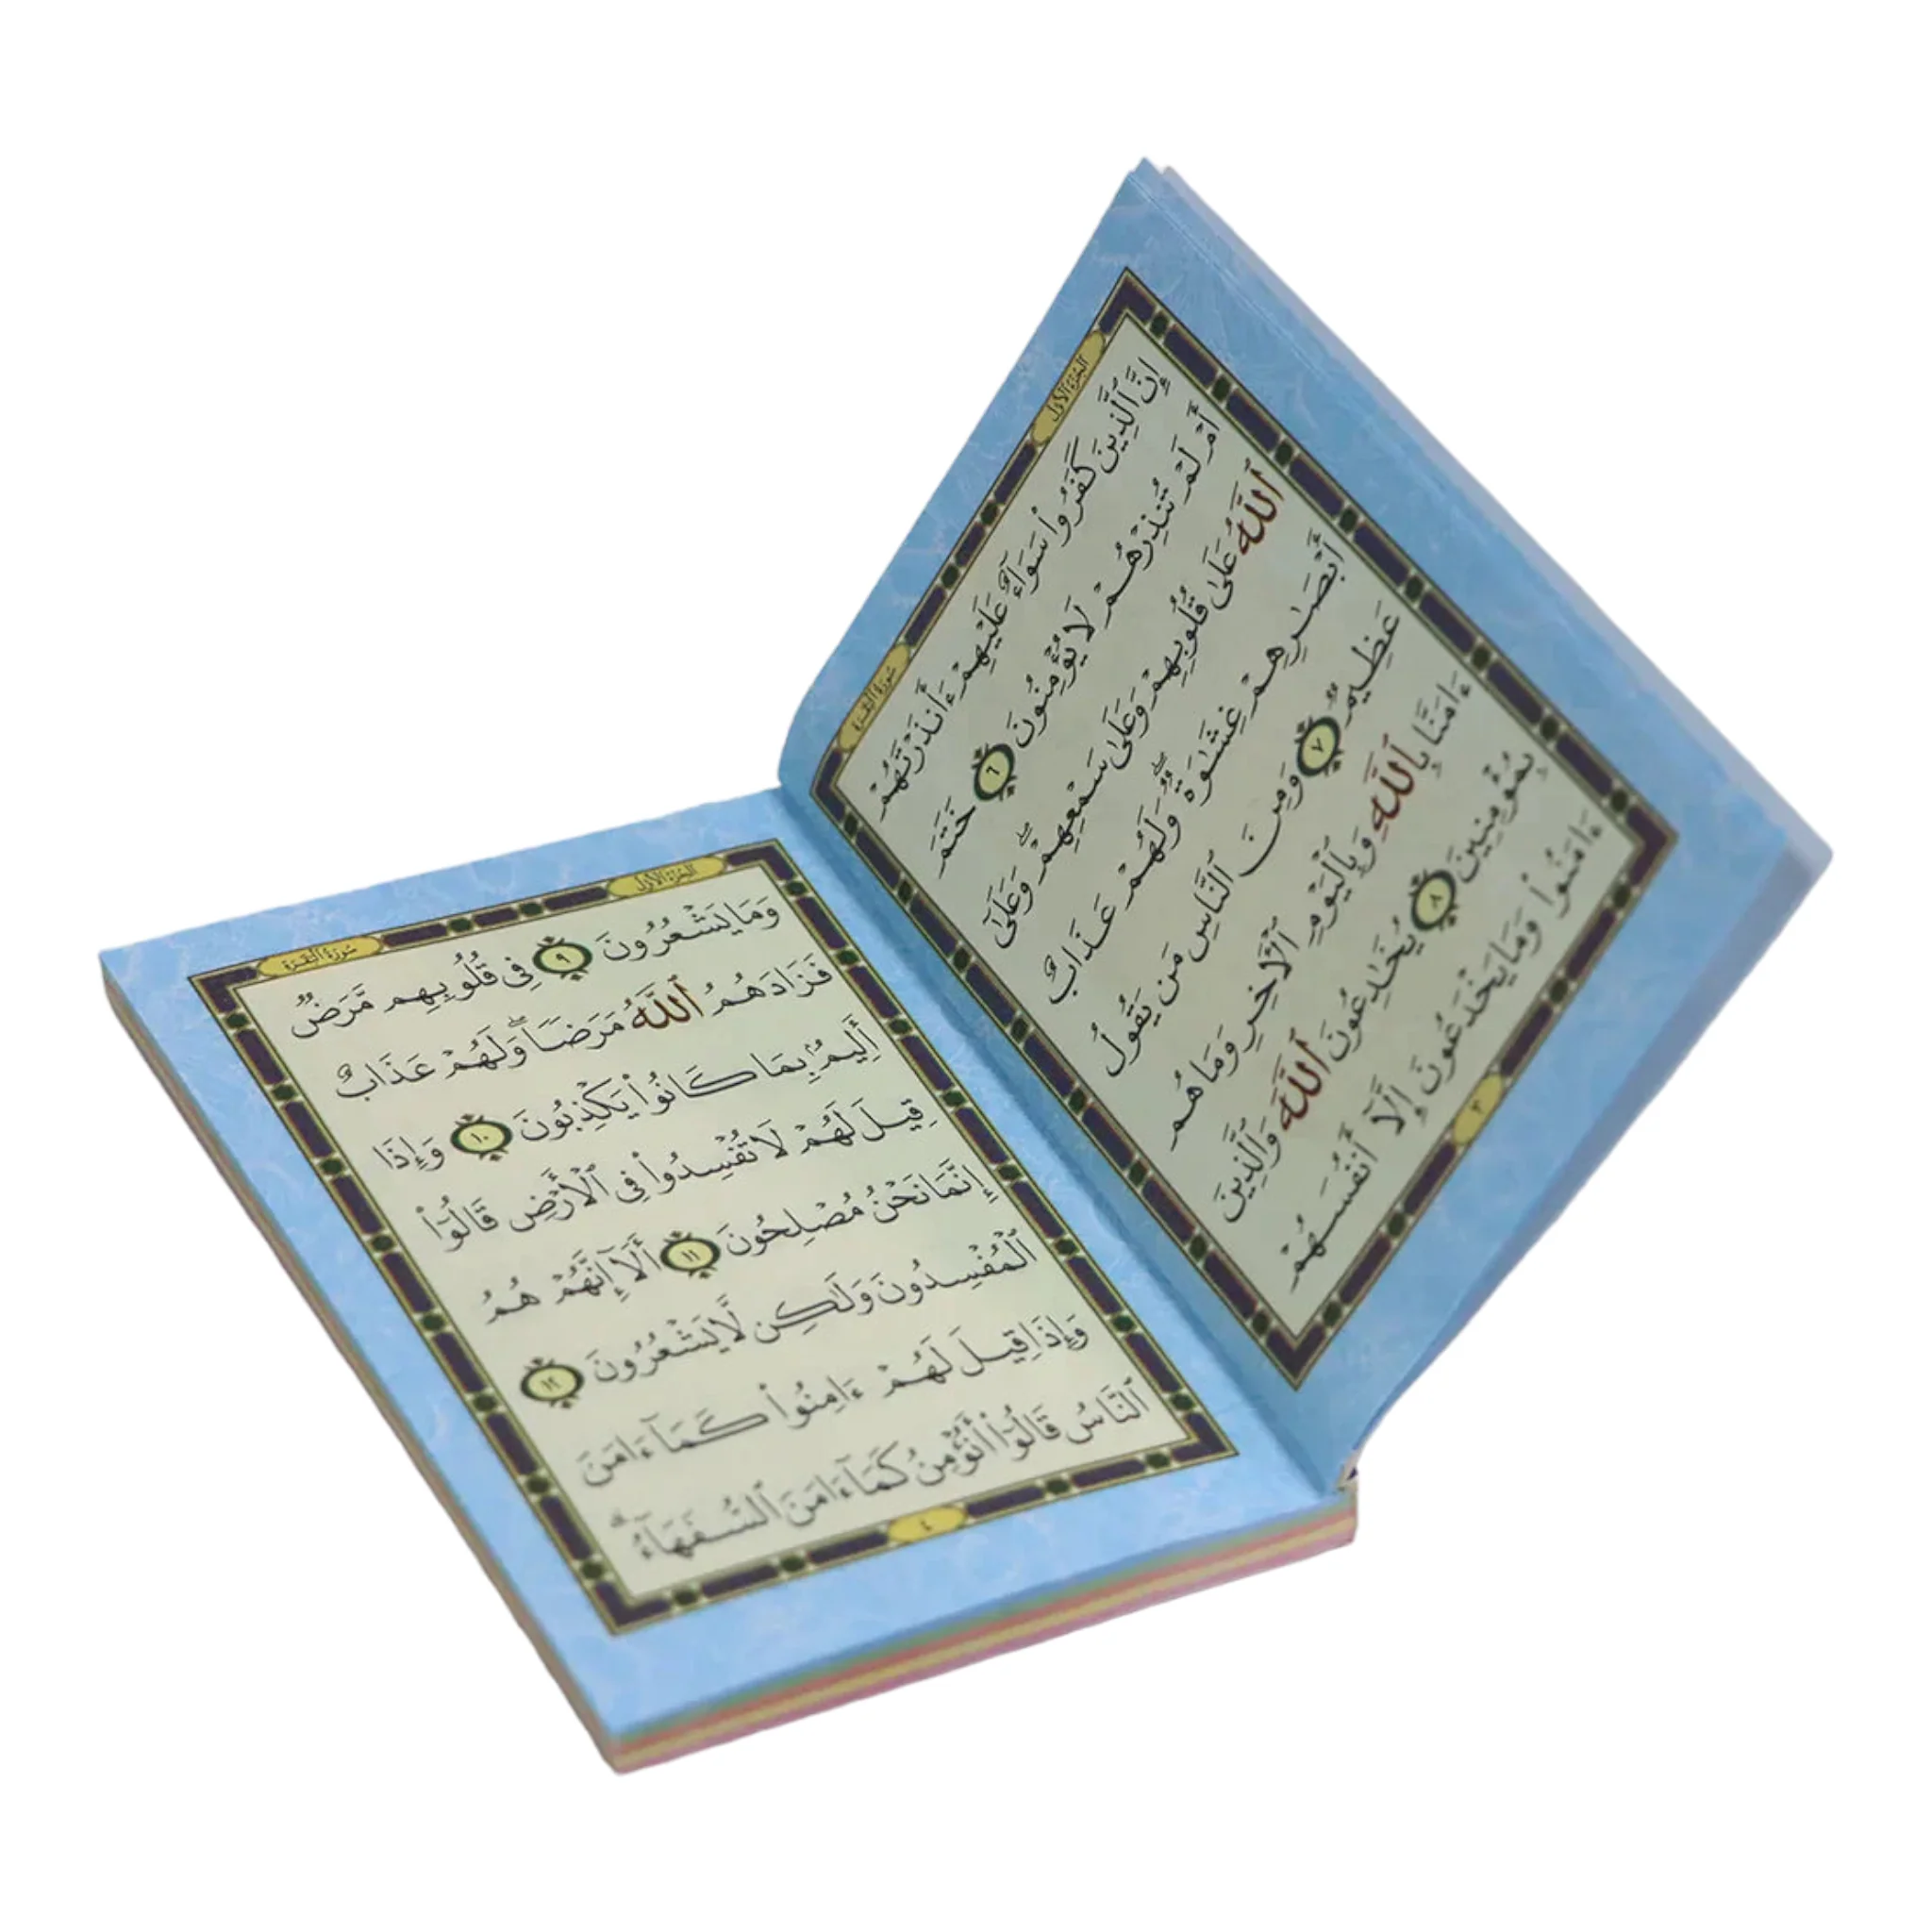 الجزء الأول
سورة البقرة
إِنَّ ٱلَّذِينَ كَفَرُوا۟ سَوَآءٌ عَلَيْهِمْ ءَأَنذَرْتَهُمْ
أَمْ لَمْ تُنذِرْهُمْ لَا يُؤْمِنُونَ ٦ خَتَمَ
ٱللَّهُ عَلَىٰ قُلُوبِهِمْ وَعَلَىٰ سَمْعِهِمْ ۖ وَعَلَىٰٓ
أَبْصَٰرِهِمْ غِشَٰوَةٌ ۖ وَلَهُمْ عَذَابٌ
عَظِيمٌ ٧ وَمِنَ ٱلنَّاسِ مَن يَقُولُ
ءَامَنَّا بِٱللَّهِ وَبِٱلْيَوْمِ ٱلْأَخِرِ وَمَا هُم
بِمُؤْمِنِينَ ٨ يُخَٰدِعُونَ ٱللَّهَ وَٱلَّذِينَ
ءَامَنُوا۟ وَمَا يَخْدَعُونَ إِلَّآ أَنفُسَهُمْ
٣
الجزء الأول
سورة البقرة
وَمَا يَشْعُرُونَ ٩ فِى قُلُوبِهِم مَّرَضٌ
فَزَادَهُمُ ٱللَّهُ مَرَضًا ۖ وَلَهُمْ عَذَابٌ
أَلِيمٌۢ بِمَا كَانُوا۟ يَكْذِبُونَ ١٠ وَإِذَا
قِيلَ لَهُمْ لَا تُفْسِدُوا۟ فِى ٱلْأَرْضِ قَالُوٓا۟
إِنَّمَا نَحْنُ مُصْلِحُونَ ١١ أَلَآ إِنَّهُمْ هُمُ
ٱلْمُفْسِدُونَ وَلَٰكِن لَّا يَشْعُرُونَ ١٢
وَإِذَا قِيلَ لَهُمْ ءَامِنُوا۟ كَمَآ ءَامَنَ
ٱلنَّاسُ قَالُوٓا۟ أَنُؤْمِنُ كَمَآ ءَامَنَ ٱلسُّفَهَآءُ ۗ
٤